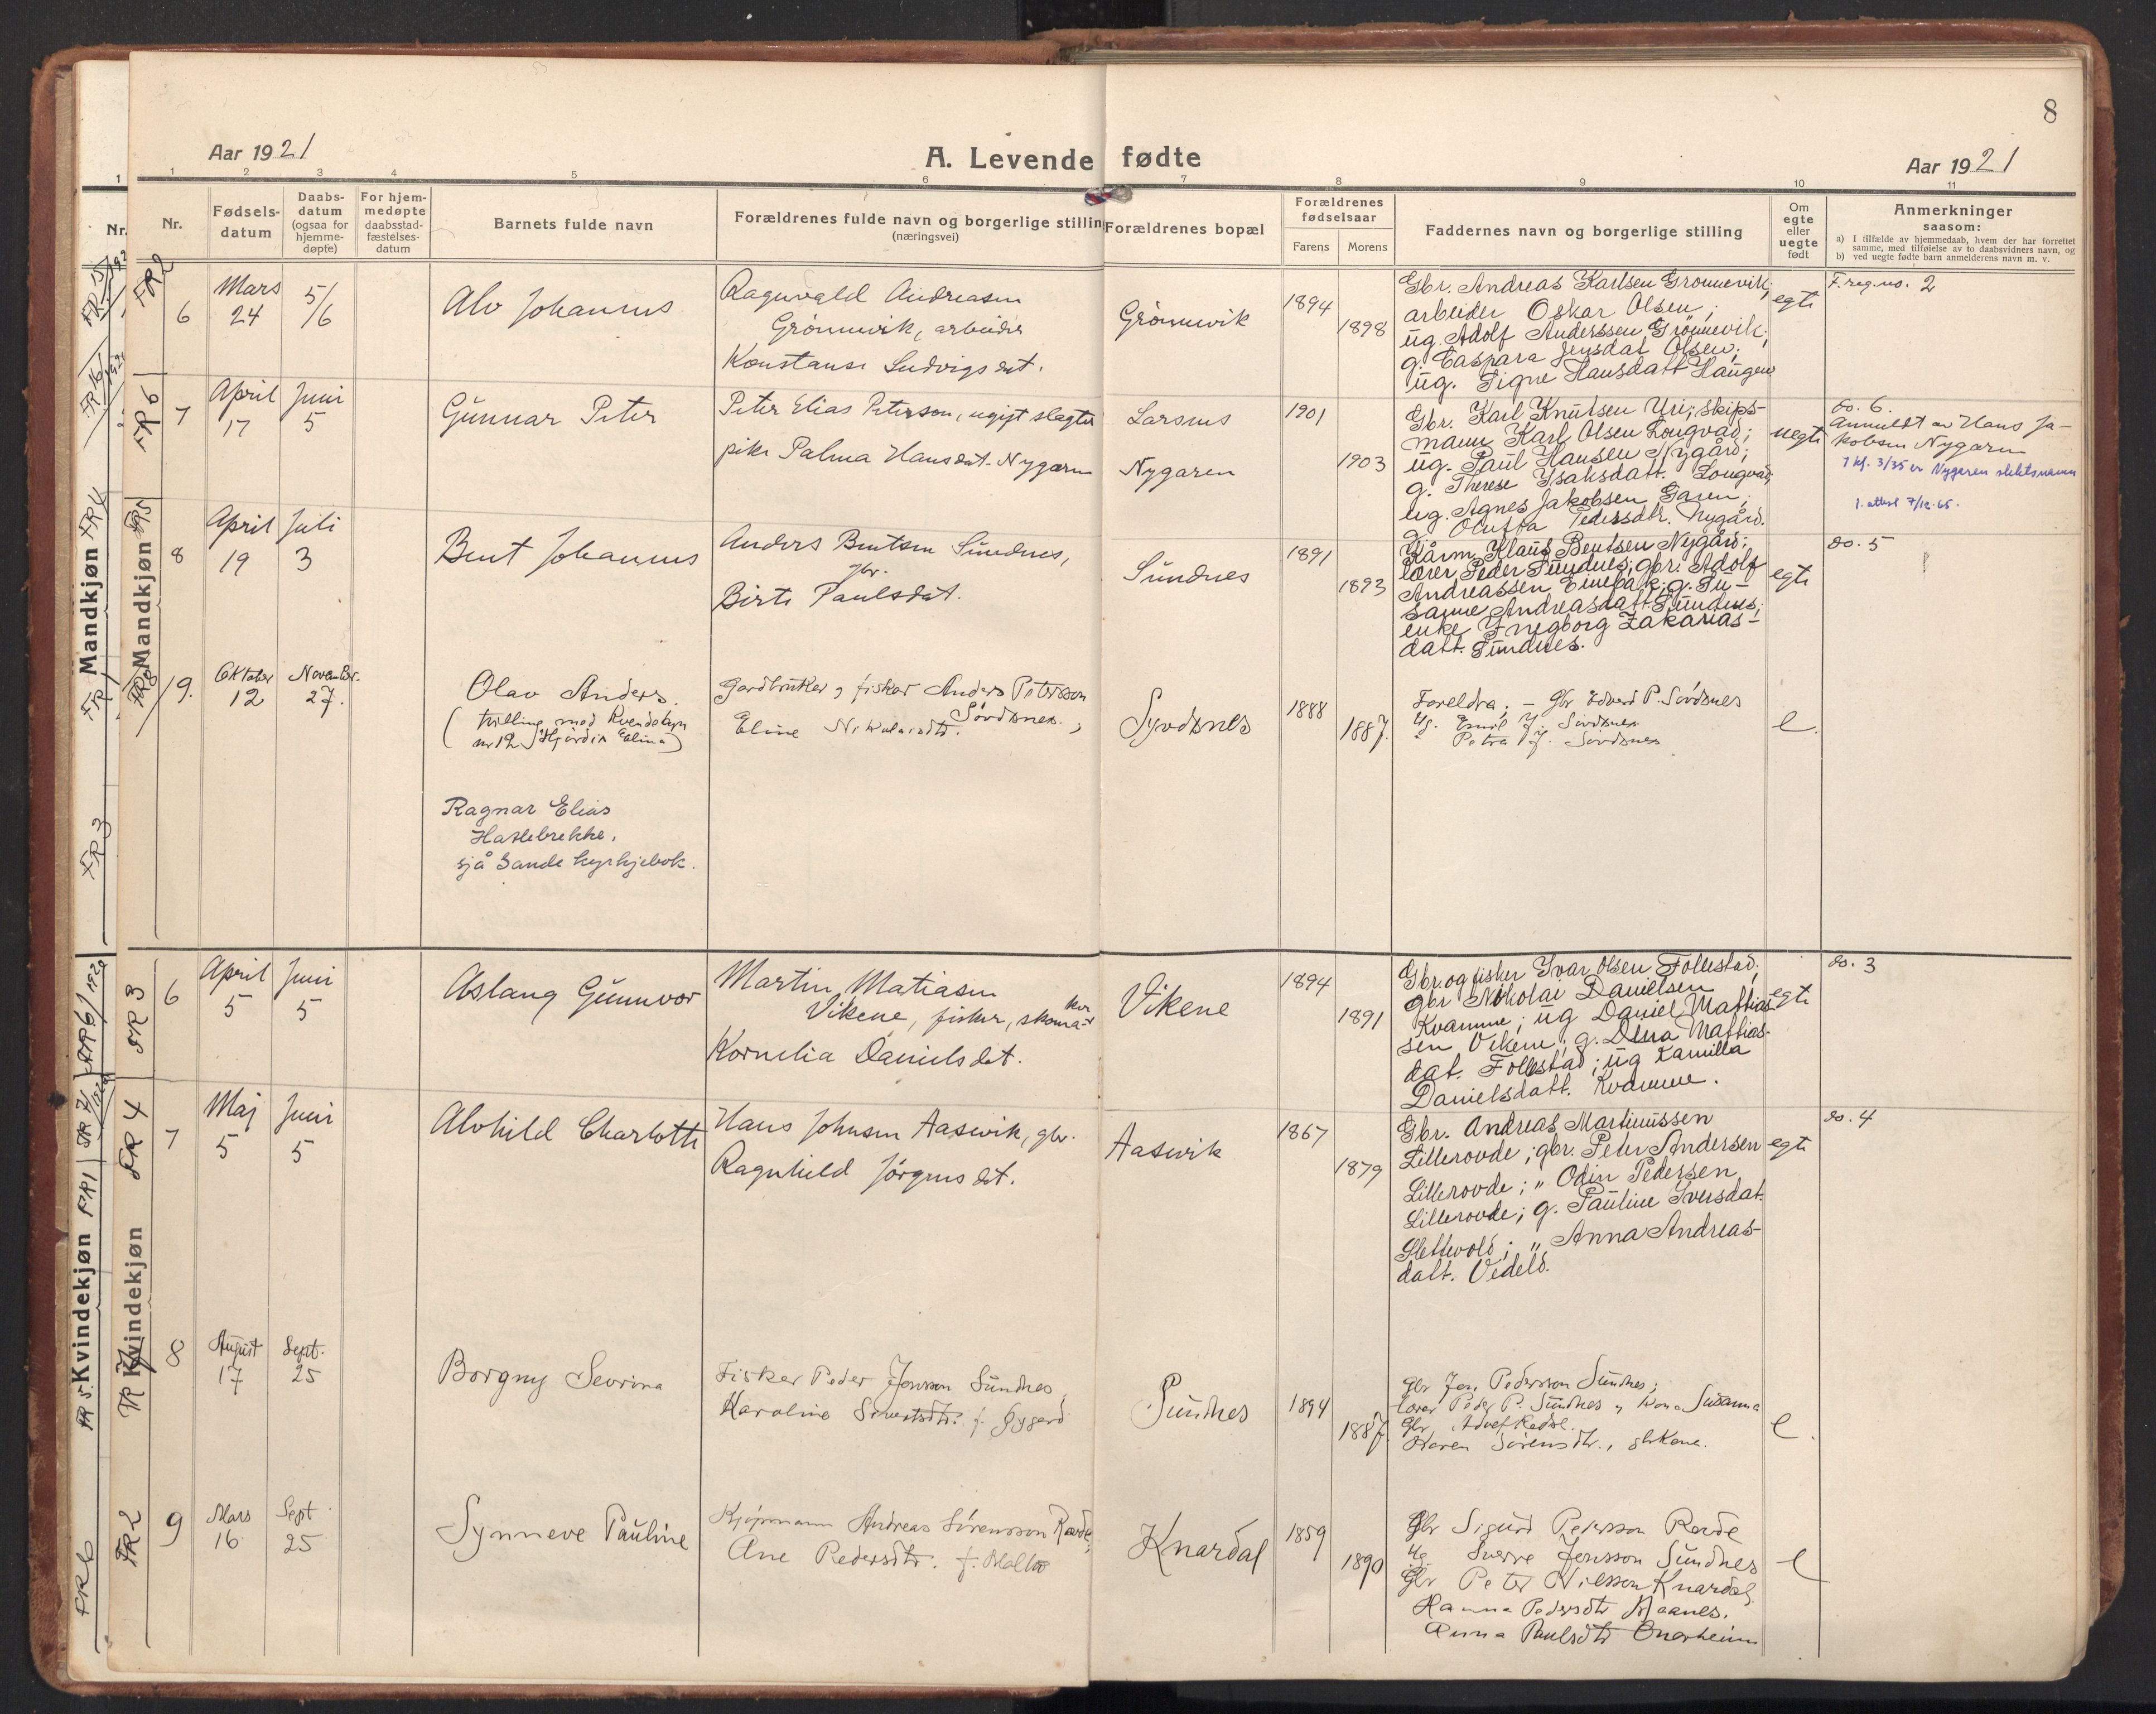 8
Aar 1921
A. Levende fødte
Aar 1921
1 1 2 3 4 5 6 7 8 9 10 11
Nr.
Nr.
Fødsels-
datum
Daabs-
datum
(ogsaa for
hjemme-
døpte)
For hjem-
medøpte
daabsstad-
fæstelses-
datum
Barnets fulde navn
Forældrenes fulde navn og borgerlige stilling
(næringsvei)
Forældrenes bopæl
Forældrenes
fødselsaar
Farens Morens
Faddernes navn og borgerlige stilling
Om
egte
eller
uegte
født
Anmerkninger
saasom:
a) I tilfælde av hjemmedaab, hvem der har forrettet
samme, med tilføielse av to daabsvidners navn, og
b) ved uegte fødte barn anmelderens navn m. v.
Mandkjøn
Mandkjøn
FR2
6
Mars
24
5/6
Alv Johannes
Ragnvald Andreasen
Grønnevik, arbeider
Konstanse Ludvigsdat.
Grønnevik
1894
1898
Gbr. Andreas Karlsen Grønnevik,
arbeider Oskar Olsen;
ug. Adolf Anderssen Grønnevik;
g. Caspara Jensdat Olsen;
ug. Signe Hansdatt Haugen
egte
F.reg.no. 2
FR6
7
April
17
Juni
5
Gunnar Peter
Peter Elias Peterson, ugift slagter
pike Palma Hansdat. Nygaren
Larsnes
Nygaren
1901
1903
Gbr. Karl Knutsen Uri; skips-
mann Karl Olsen Longvad;
ug. Paul Hansen Nygård;
g. Therese Ysaksdatt. Longvad;
ug. Agnes Jakobsen Garen;
g. Oluffa Pedersdtr. Nygård.
uegte
do. 6.
Anmeldt av Hans Ja-
kobsen Nygaren
1 kf. 3/35 er Nygaren slektsnamn
1. attest 7/12-65.
FR5
8
April
19
Juli
3
Bent Johannes
Anders Bentsen Sundnes,
gbr.
Birte Paulsdat.
Sundnes
1891
1893
Kårm. Klaus Bentsen Nygård;
lærer Peder Sundnes; gbr. Adolf
Andreassen Einebak; g. Su-
sanne Andreasdatt Sundnes;
enke Yngeborg Zakarias-
datt. Sundnes.
egte
do. 5
9.
Oktober
12
Novembr.
27.
Olav Anders.
(tvilling med kvendekyn
nr 12 Hjørdis Eelina)
Gardbruker og fiskar Anders Petersson
Sövdsnes.,
Eline Nikolaisdtr.
Syvdsnes
1888
1887.
Foreldra; - Gbr Edvard P. Sövdsnes
Ug. Emil J. Sövdsnes
" Petra J. Sövdsnes
e.
Ragnar Elias
Haslebrekke,
sjå Sande kyrkjebok.
Kvindekjøn
Kvindekjøn
FR 3
6
April
5
Juni
5
Aslaug Gunnvor
Martin Matiasen
Vikene, fisker, skoma-
ker
Kornelia Danielsdat.
Vikene
1894
1891
Gbr. og fisker Ivar Olsen Follestad,
gbr Nikolai Danielsen
Kvamme; ug Daniel Mattias-
sen Vikene; g. Dina Mattias-
dat. Follestad; ug Kamilla
Danielsdatt. Kvamme.
egte
do. 3
FR 4
7
Maj
5
Juni
5
Alvhild Charlotte
Hans Johnsen Aasevik, gbr.
Ragnhild Jørgensdat.
Aasevik
1867
1879
Gbr. Andreas Martinussen
Lillerovde; gbr. Peter Andersen
Lillerovde; " Odin Pedersen
Lillerovde; g. Pauline Iversdat.
Slettevold; " Anna Andreas-
datt. Vedeld.
egte
do. 4
8
August
17
Sept.
25
Borgny Sevrina
Fisker Peder Jonsson Sundnes,
Karoline Sivertsdtr. f.
Sundnes
1894
1887.
Gbr Jon Pedersson Sundnes;
lærer Peder P. Sundnes og kona Susanna
Gbr
Karen Sørensdtr., gbrkone.
e.
FR2
9
Mars
16
Sept
25
Synneve Pauline
Kjøpmann Andreas Sørensson Rovde;
Ane Pedersdtr. f.
Knardal
1859
1890
Gbr Sigurd Pedersson Rovde
Ug. Sverre Jonsson Sundnes
Gbr Peter Nilsson Knardal.
Hanna Pedersdtr Maanes.
Anna Paulsdtr Onarheim
e
FR 3
FR1
FR6